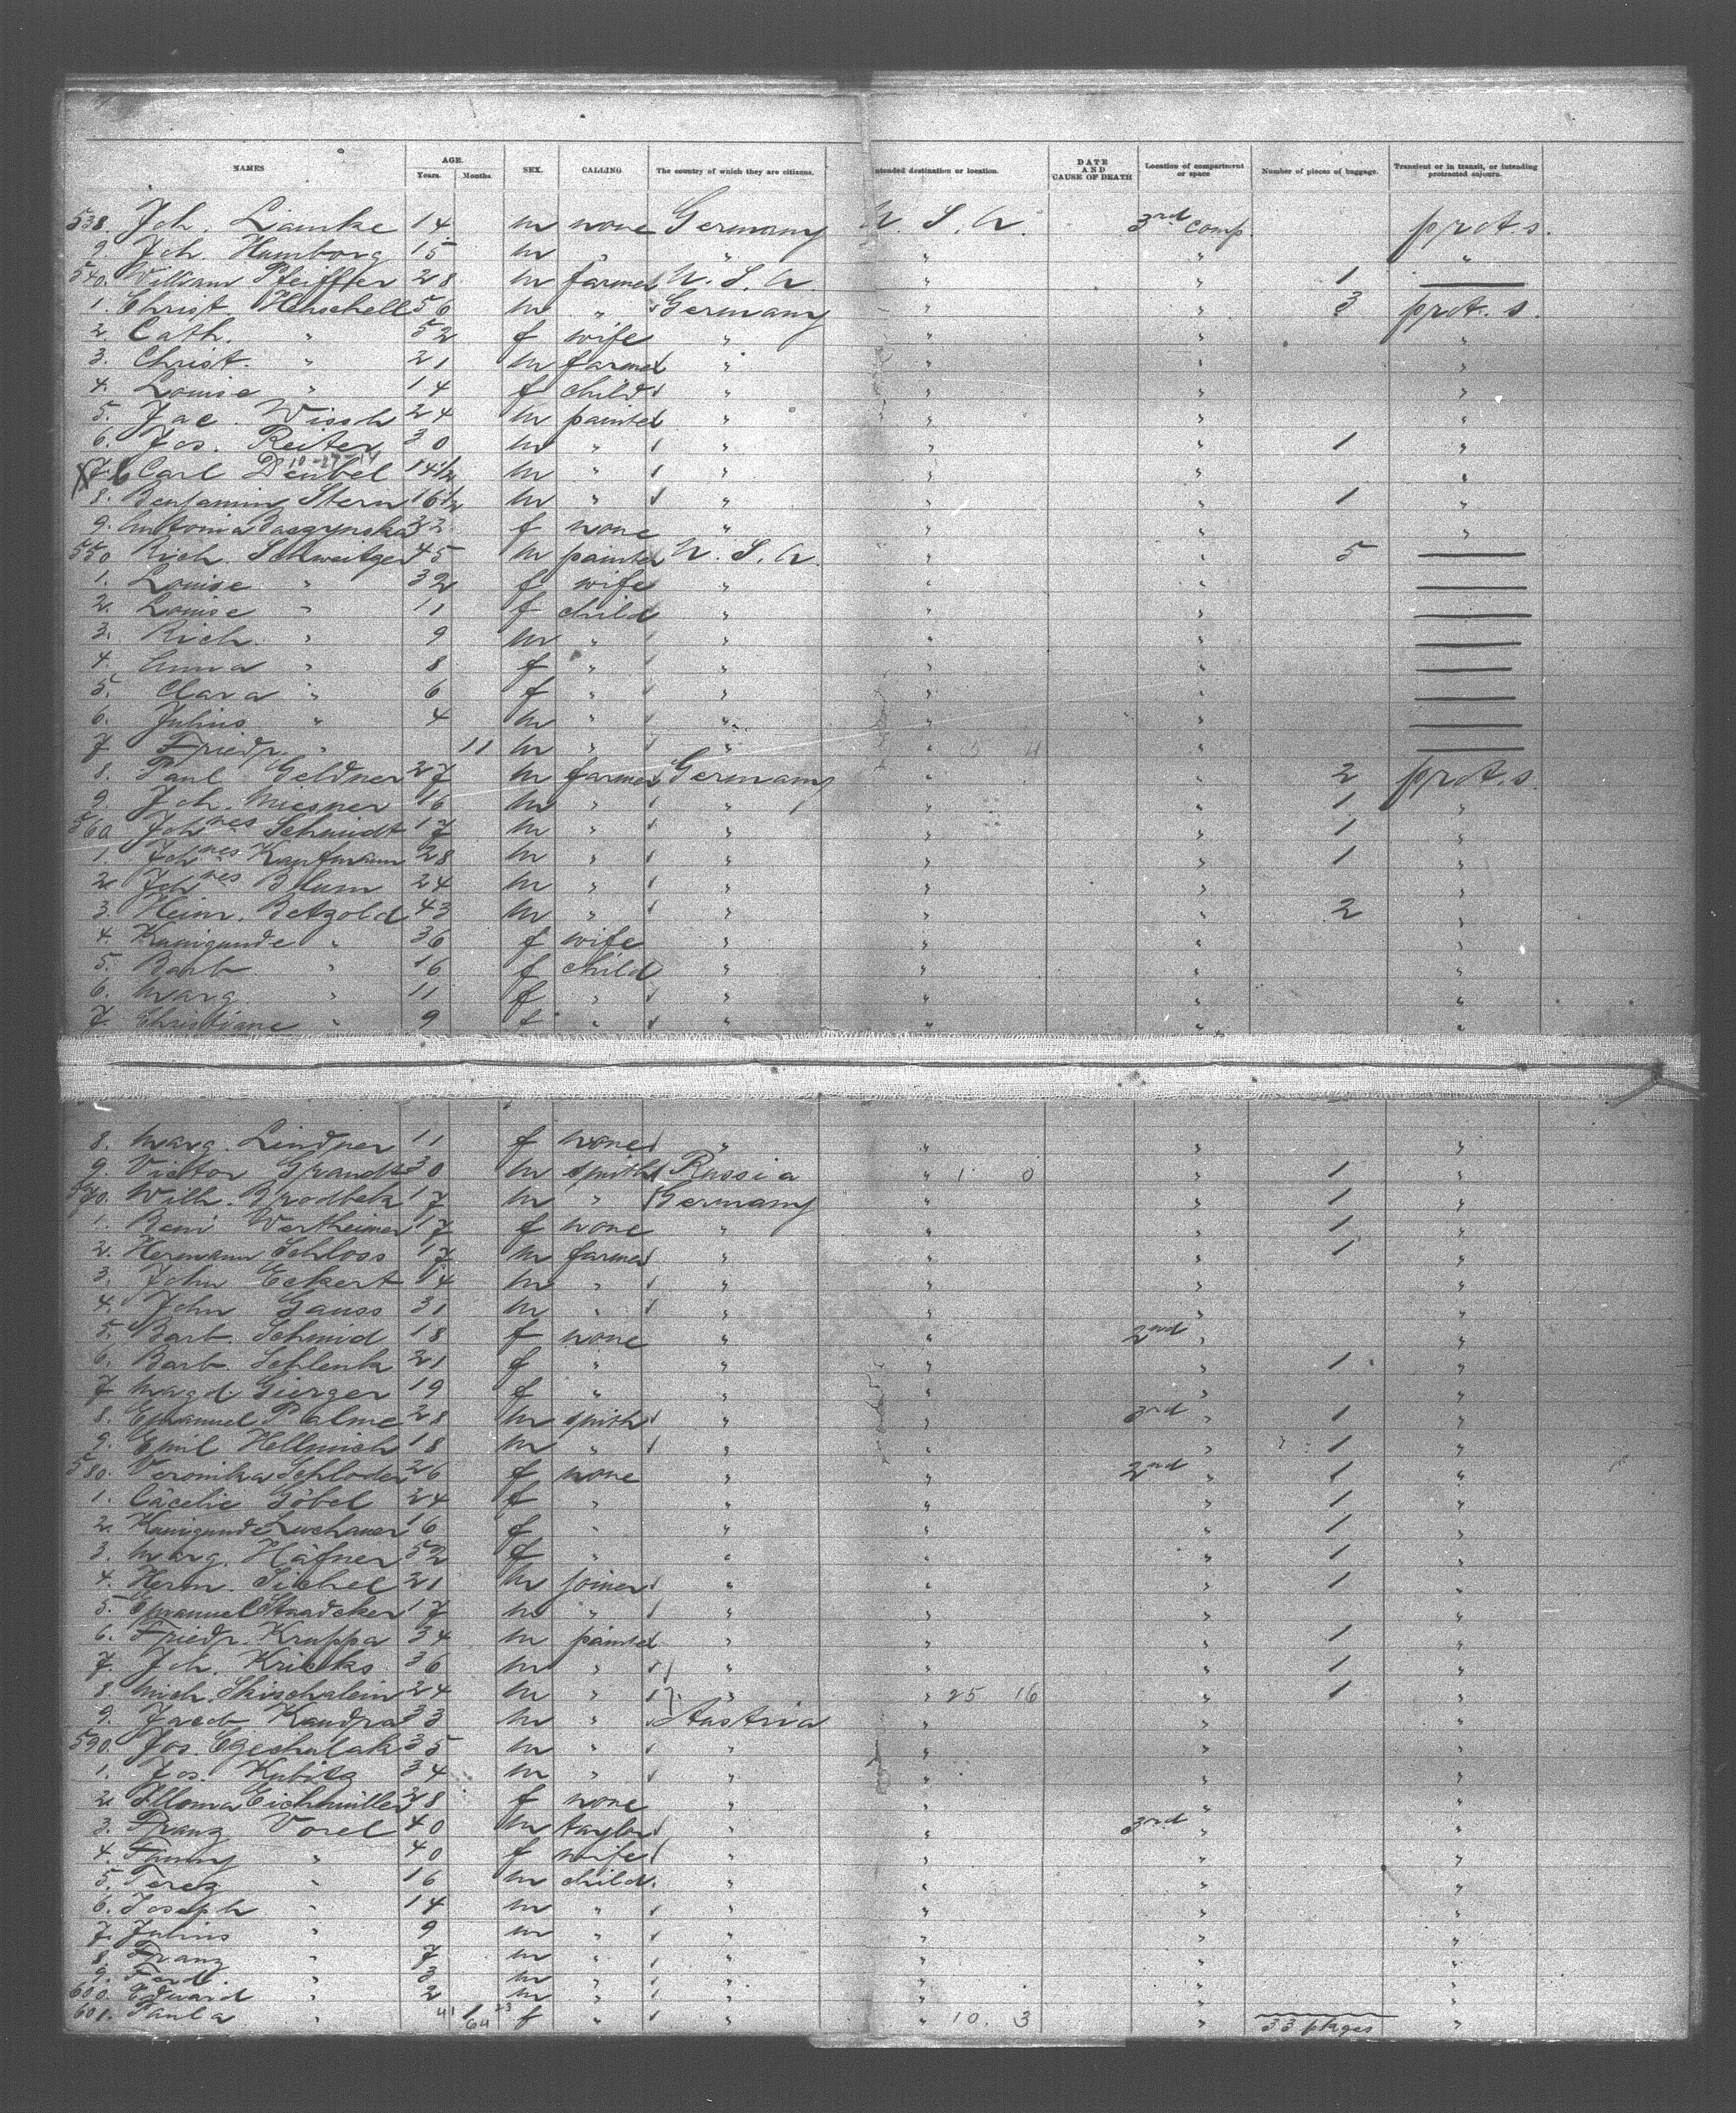 NAMES AGE. Years. Months. SEX. CALLING The country of which they are citizens. ntended destination or location. DATE AND CAUSE OF DEATH Location of compartment or space Number of pieces of baggage. Transient or in transit, or intending protracted sojourn.
538. Joh. Liamke 14 m none Germany U. S. A. 3rd comp. prot. s.
9. Joh. Hamborg 15 m " " " " "
540. William Pfeiffer 28 m farmer U. S. A. " " 1 —
1. Christ. Henschell 56 m " Germany " " 3 prot. s.
2. Cath. " 52 f wife " " " "
3. Christ. " 21 m farmer " " " "
4. Louise " 14 f child " " " "
5. Jac. Wissh 24 m painter " " " "
6. Jos. Reiter 30 m " " " " 1 "
7. Carl Deubel 14½ m " " " " "
8. Benjamin Stern 16½ m " " " " 1 "
9. Antonia Baczynska 32 f none " " " "
550 Rich. Schweitzer 45 m painter U. S. A. " " 5 —
1. Louise " 32 f wife " " " —
2. Louise " 11 f child " " " —
3. Rich. " 9 m " " " " —
4. Anna " 8 f " " " " —
5. Clara " 6 f " " " " —
6. Julius " 4 m " " " " —
7 Friedr. " 11 m " " " 5 4 " —
8. Paul Geldner 27 m farmer Germany " " 2 prot. s.
9 Joh. Miesner 16 m " " " " 1 "
560 Johnes Schmidt 17 m " " " " 1 "
1. Johnes Kaufmann 28 m " " " " 1 "
2 Johnes Blum 24 m " " " " "
3. Heinr. Betzold 43 m " " " " 2 "
4. Kunigunde " 36 f wife " " " "
5. Barb. " 16 f child " " " "
6. Marg. " 11 f " " " " "
7. Christiane " 9 f " " " " "
8. Marg. Lindner 11 f none " " " "
9. Victor Grandt 30 m smith Russia " 1 0 " 1 "
570. Wilh. Brodbek 17 m " Germany " " 1 "
1. Beni Wertheimer 17 f none " " " 1 "
2. Hermann Schloss 17 m farmer " " " 1 "
3. John Eckert 14 m " " " " "
4. John Gauss 31 m " " " " "
5. Barb. Schmid 18 f none " " 2nd " "
6. Barb. Schlenk 21 f " " " " 1 "
7 Magd. Gierger 19 f " " " " "
8. Emanuel Palme 28 m smith " " 3rd " 1 "
9. Emil Hellmich 18 m " " " " 1 "
580. Veronika Schloder 26 f none " " 2nd " 1 "
1. Cäcelie Göbel 24 f " " " " 1 "
2. Kunigunde Luchauer 16 f " " " " 1 "
3. Marg. Häfner 52 f " " " " 1 "
4. Herm. Sichel 21 m joiner " " " 1 "
5. Emanuel Staadeker 17 m " " " " "
6. Friedr. Kruppa 34 m painter " " " 1 "
7. Joh. Kricks 36 m " " " " 1 "
8. Mich. 24 m " " " 25 16 " 1 "
9. Jacob Kandra 33 m " Austria " " "
590. Jos. 35 m " " " " "
1. Jos. Kubitz 34 m " " " " "
2. Eichmüller 28 f none " " " "
3. Franz Vorel 40 m taylor " " 3rd " "
4. Fanny " 40 f wife " " " "
5. Terez " 16 m child " " " "
6. Joseph " 14 m " " " " "
7. Julius " 9 m " " " " "
8. Franz " 7 m " " " " "
9. Ferd. " 3 m " " " " "
600. Eduard " 2 m " " " " "
601. Paula " 41 1 23 64 f " " " 10. 3 " 33 pkges "